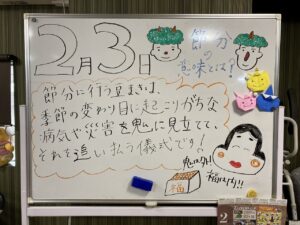 2月3日
節分
の
意味とは?
節分に行う豆まきは、
季節の変わり目に起こりがちな
病気や災害を鬼に見立てて、
それを追い払う儀式です!
鬼は外!
福は内!!
福
2